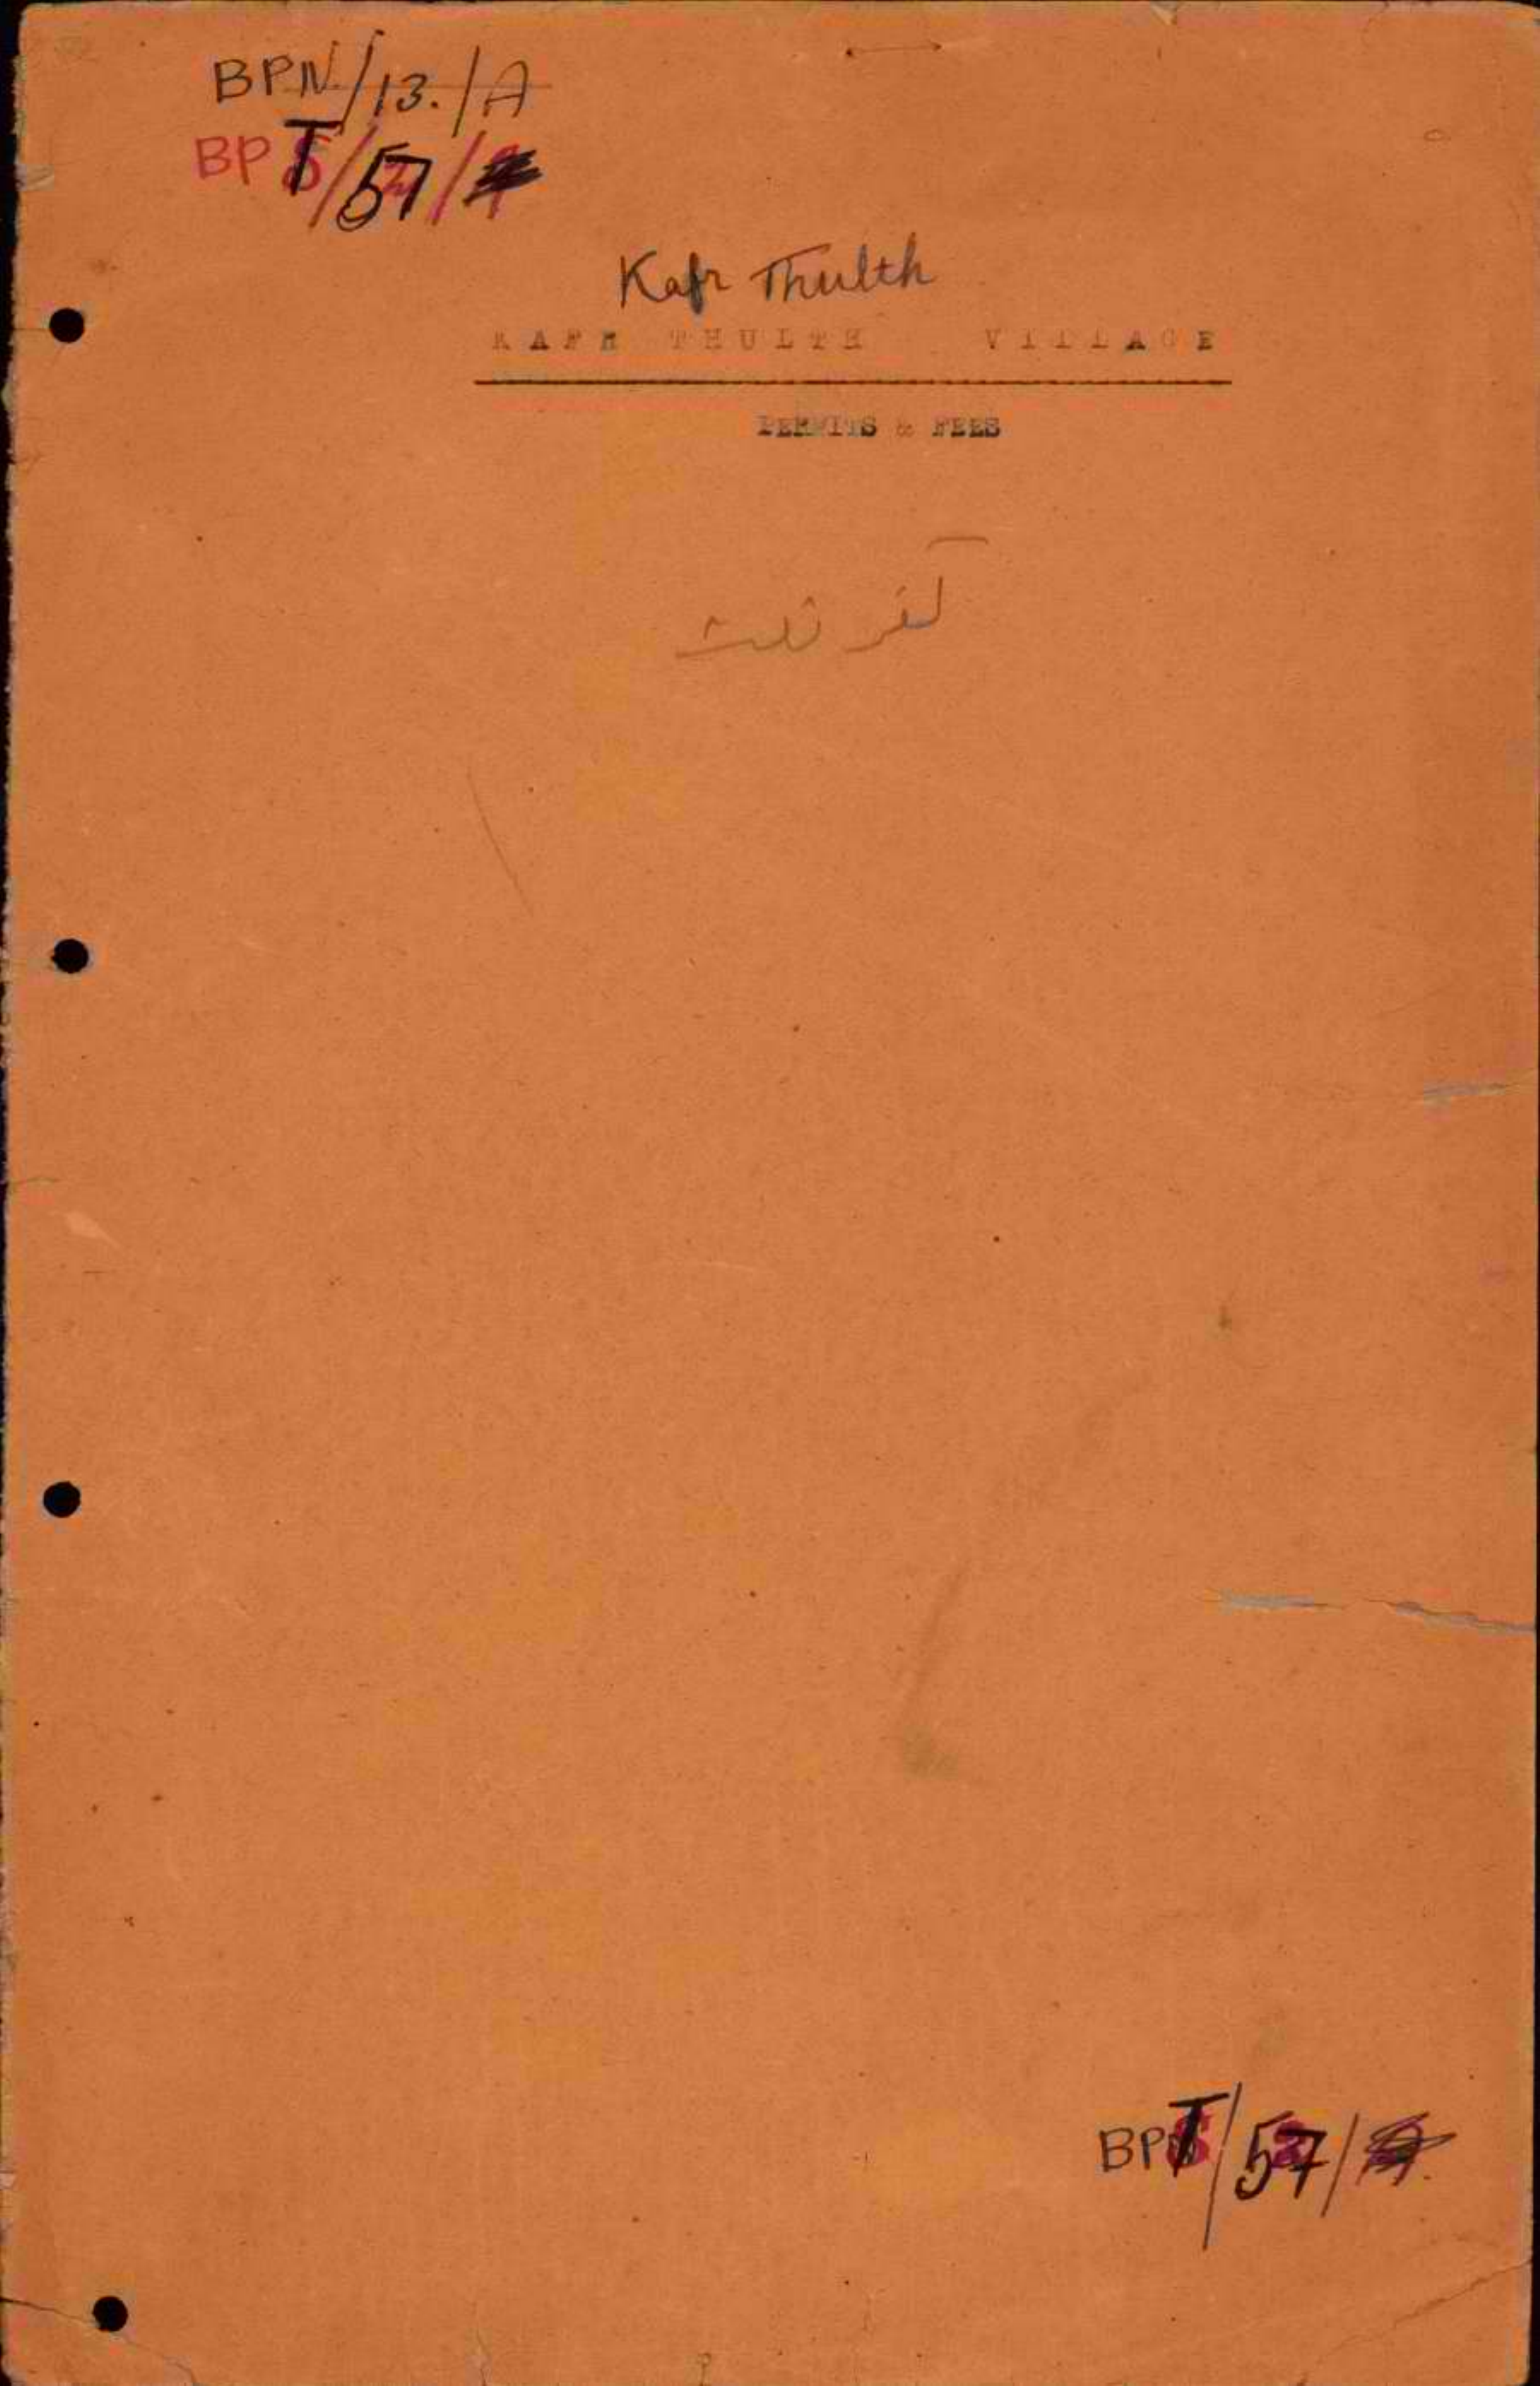 BPN/13./A
BPT/57/
Kafr Thulth
KAFR THULTH VILLAGE
PERMITS & FEES
كفر ثلث
BPT/57/